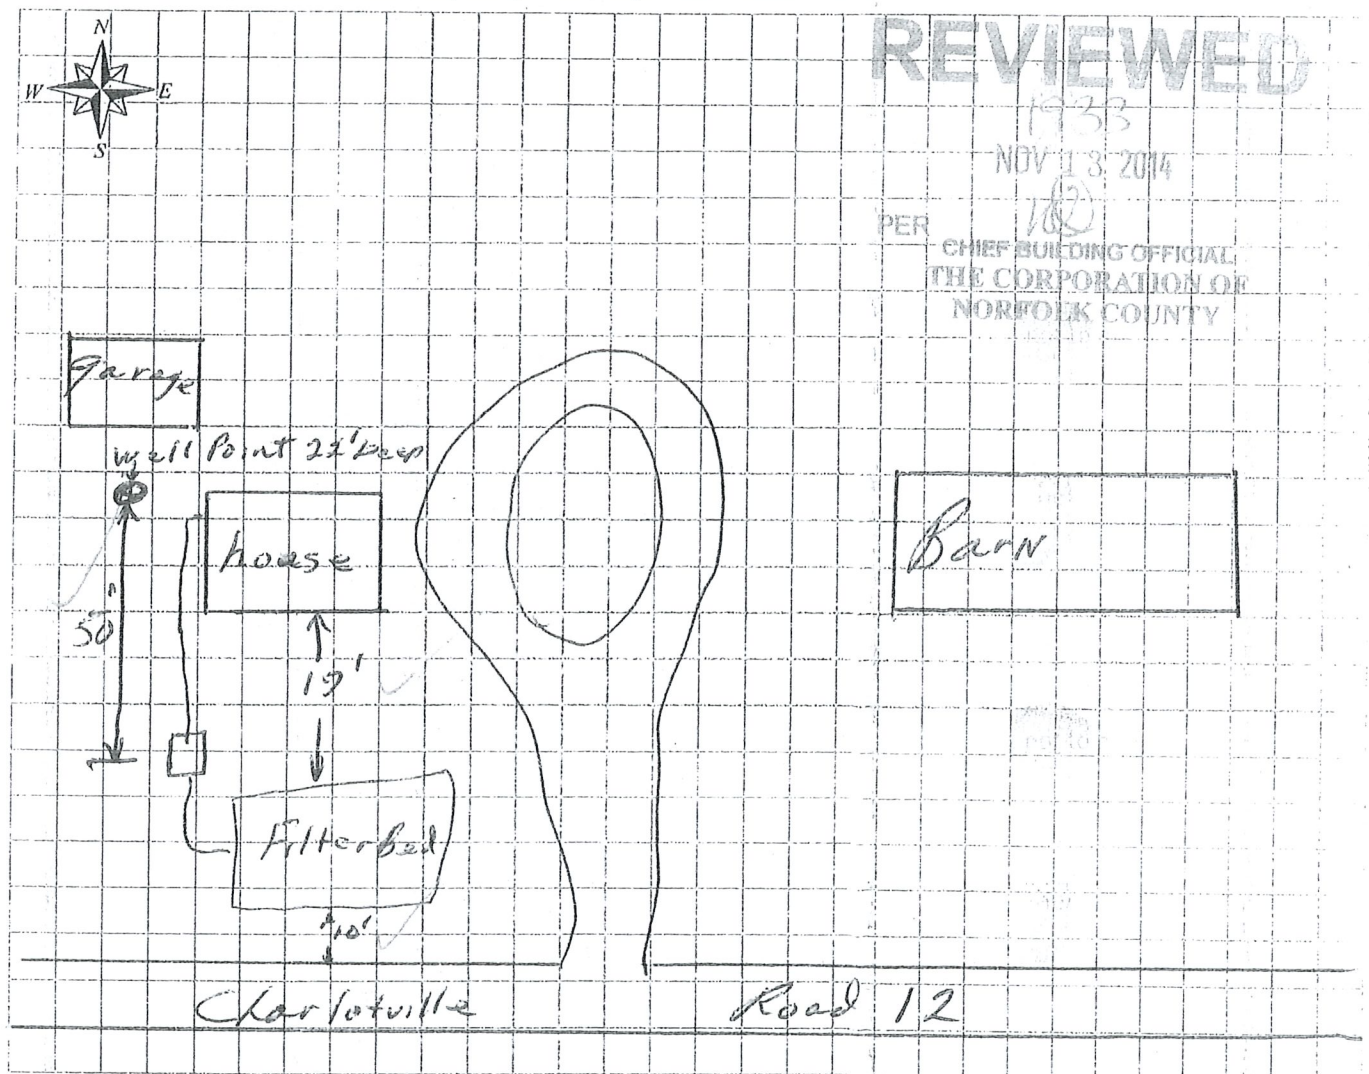 N
W E
S
REVIEWED
1933
NOV 13 2014
PER
CHIEF BUILDING OFFICIAL
THE CORPORATION OF
NORFOLK COUNTY
Garage
Well Point 22' Deep
house
Barn
50'
19'
Filter Bed
10'
Charlotville Road 12